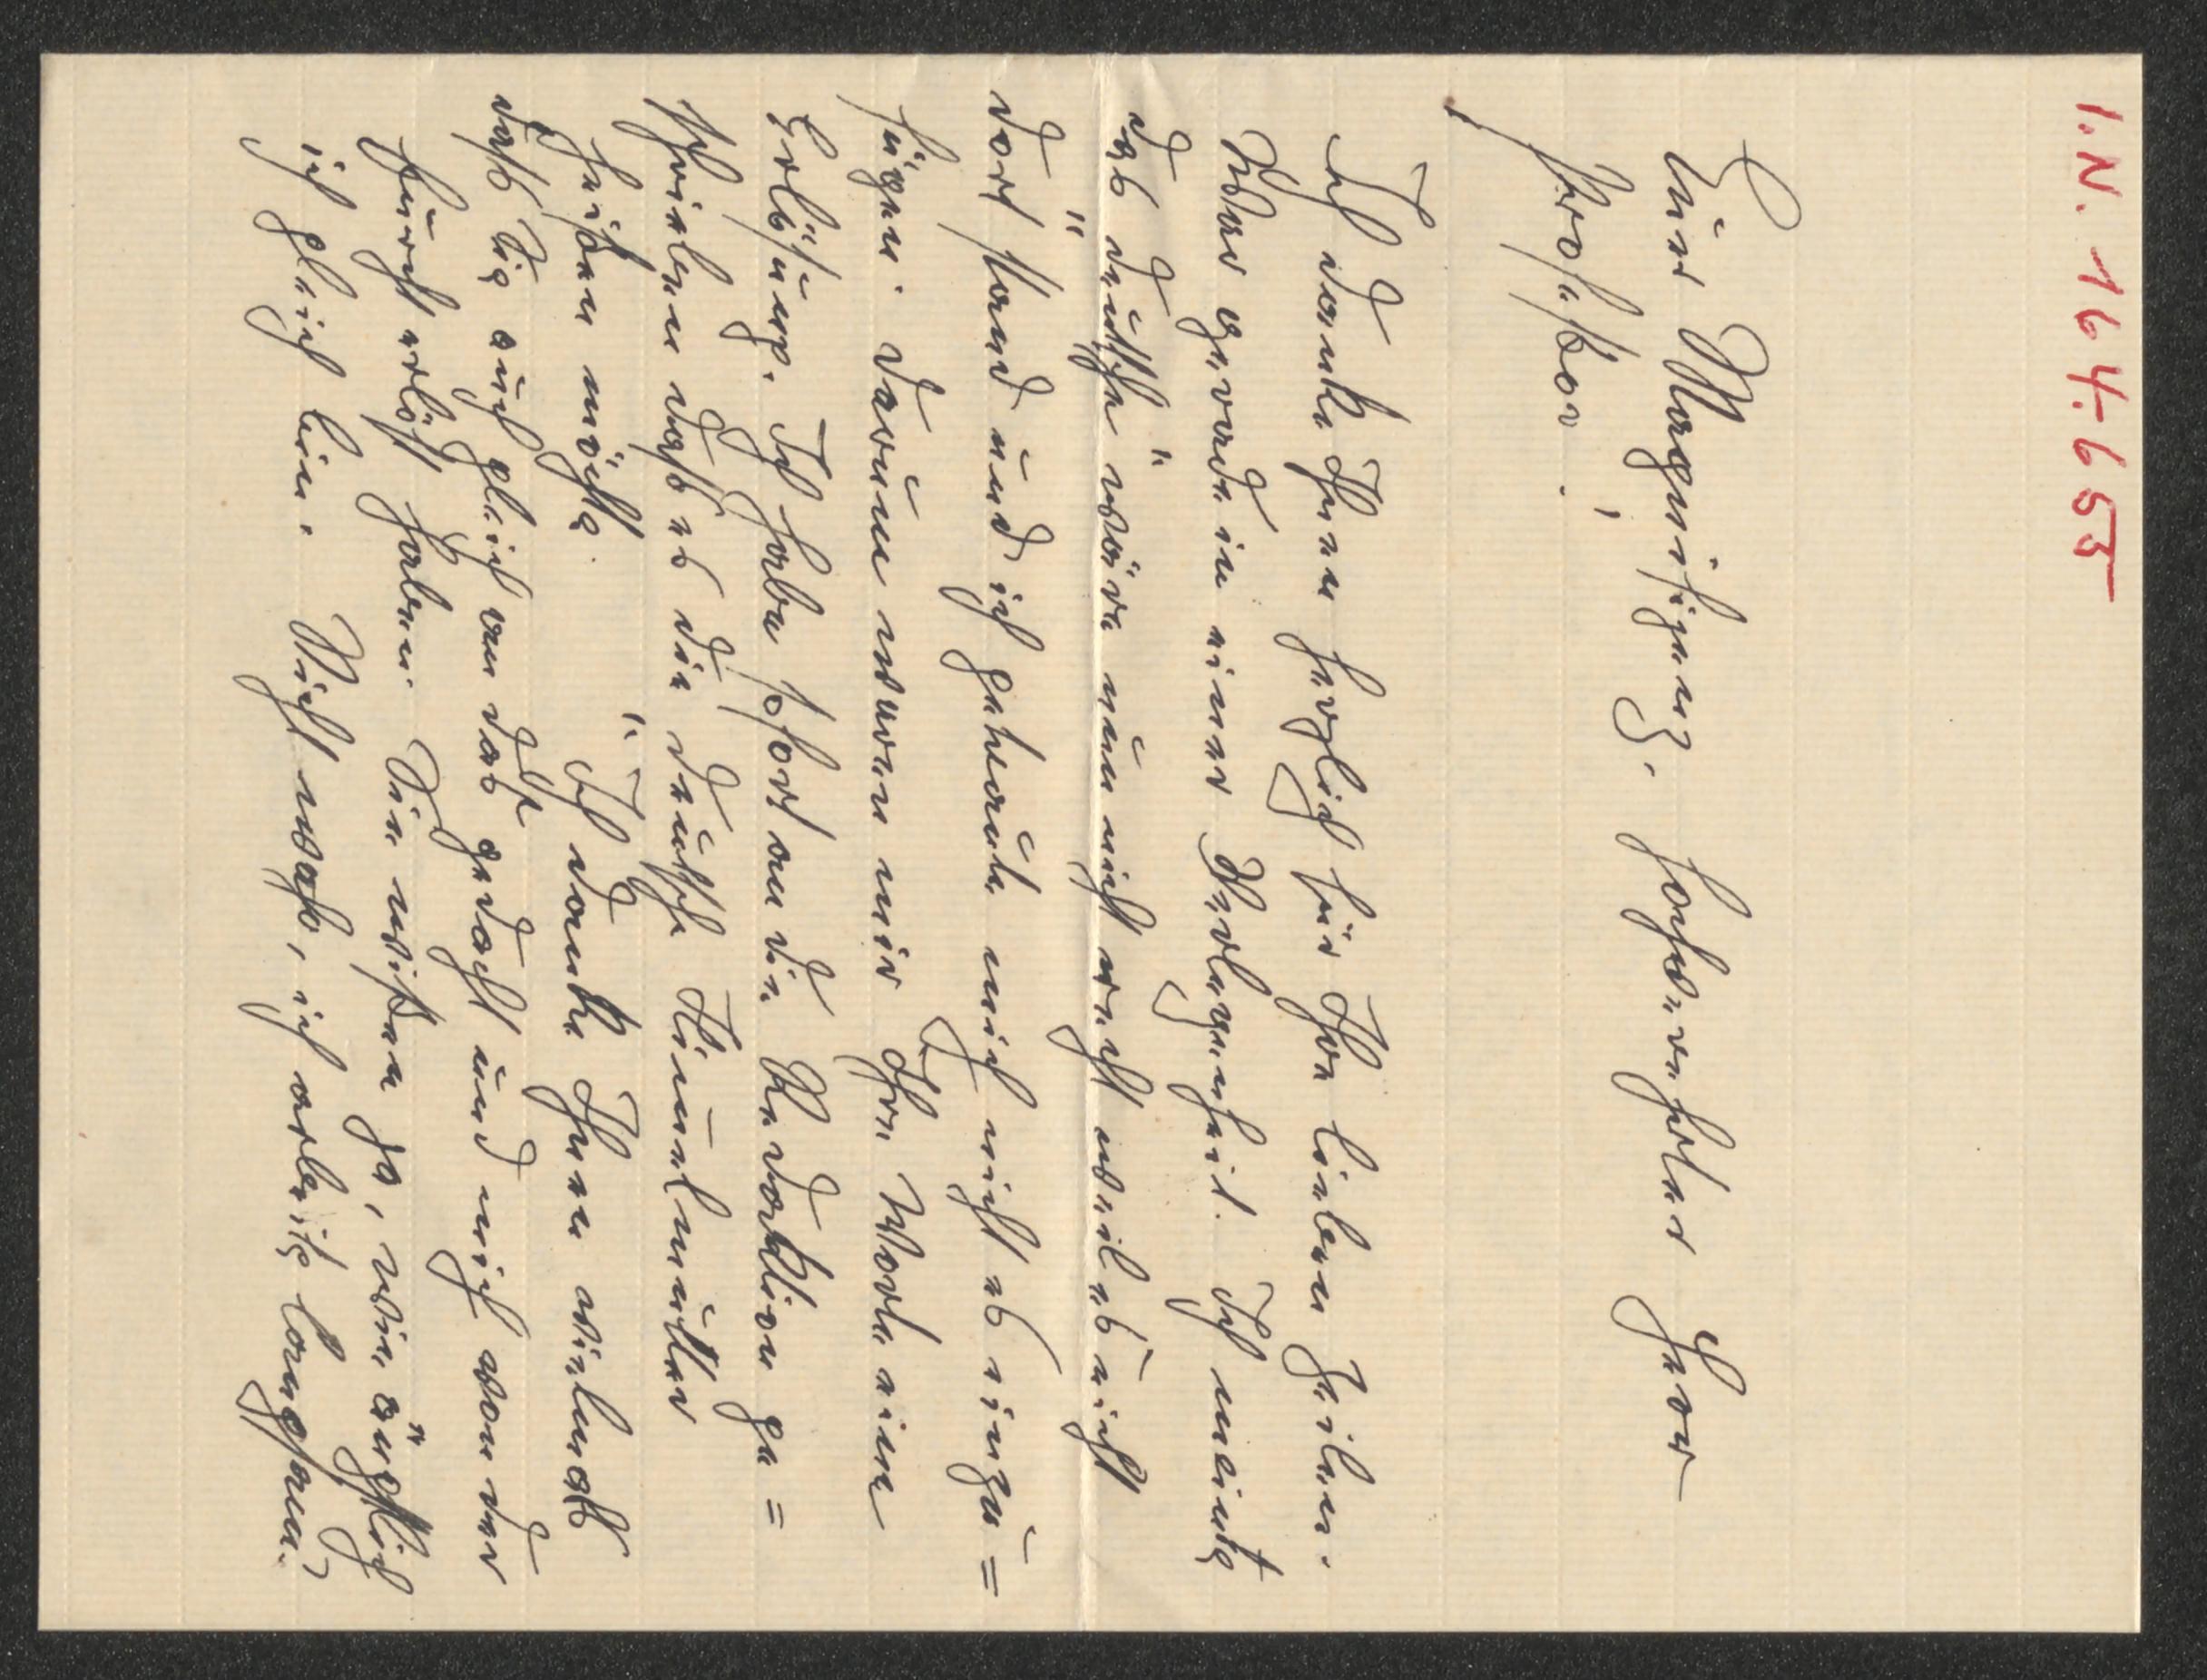 I.N. 164.655
Eure Magnifizenz. Hochverehrter Herr
Professor!
Ich danke Ihnen herzlich für Ihre lieben Zeilen.
War gerade in einer Verlegenheit. Ich meinte
das „deutsche" wäre nun nicht recht weil es nicht
dort stand und ich getraute mich nicht es einzu=
fügen. Darum waren mir Ihre Worte eine
Erlösung. Ich habe sofort an die Redaktion ge=
schrieben dass es die deutsche
heißen möchte. Ich danke Ihnen vielmals
dass Sie auch gleich an das gedacht und mich von der
Furcht erlöst haben. Sie wissen ja, wie ängstlich
ich gleich bin. Nicht wahr, ich arbeite langsam,